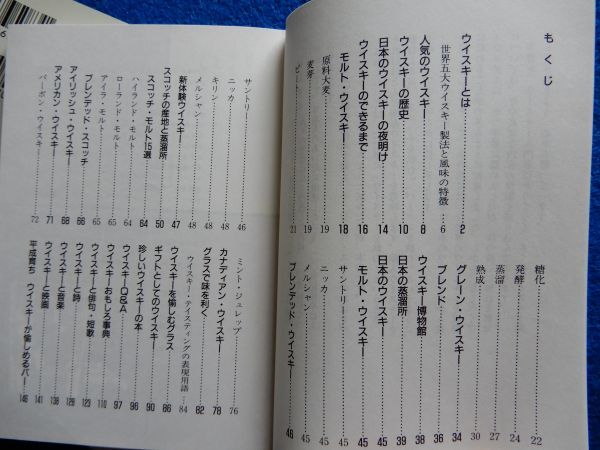 もくじ
ウイスキーとは 2
世界五大ウイスキー製法と風味の特徴 6
人気のウイスキー 8
ウイスキーの歴史 10
日本のウイスキーの夜明け 14
ウイスキーのできるまで 16
モルト・ウイスキー 18
原料大麦 19
麦芽 19
ピート 21
糖化 22
発酵 24
蒸溜 27
熟成 30
グレーン・ウイスキー 34
ブレンド 36
ウイスキー博物館 38
日本の蒸溜所 39
日本のウイスキー 45
モルト・ウイスキー 45
サントリー 45
ニッカ 45
メルシャン 45
ブレンデッド・ウイスキー 46
サントリー 46
ニッカ 48
キリン 48
メルシャン 48
新体験ウイスキー 47
スコッチの産地と蒸溜所 50
スコッチ・モルト15選 64
ハイランド・モルト 64
ローランド・モルト 65
アイラ・モルト 65
ブレンデッド・スコッチ 66
アイリッシュ・ウイスキー 68
アメリカン・ウイスキー 71
バーボン・ウイスキー 72
ミント・ジュレップ 76
カナディアン・ウイスキー 78
グラスで味を利く 82
ウイスキー・テイスティングの表現用語 84
ウイスキーを愉しむグラス 86
ギフトとしてのウイスキー 90
珍しいウイスキーの本 96
ウイスキーQ&A 97
ウイスキーおもしろ事典 110
ウイスキーと俳句・短歌 123
ウイスキーと詩 128
ウイスキーと音楽 138
ウイスキーと映画 141
平成育ち ウイスキーが愉しめるバー 146